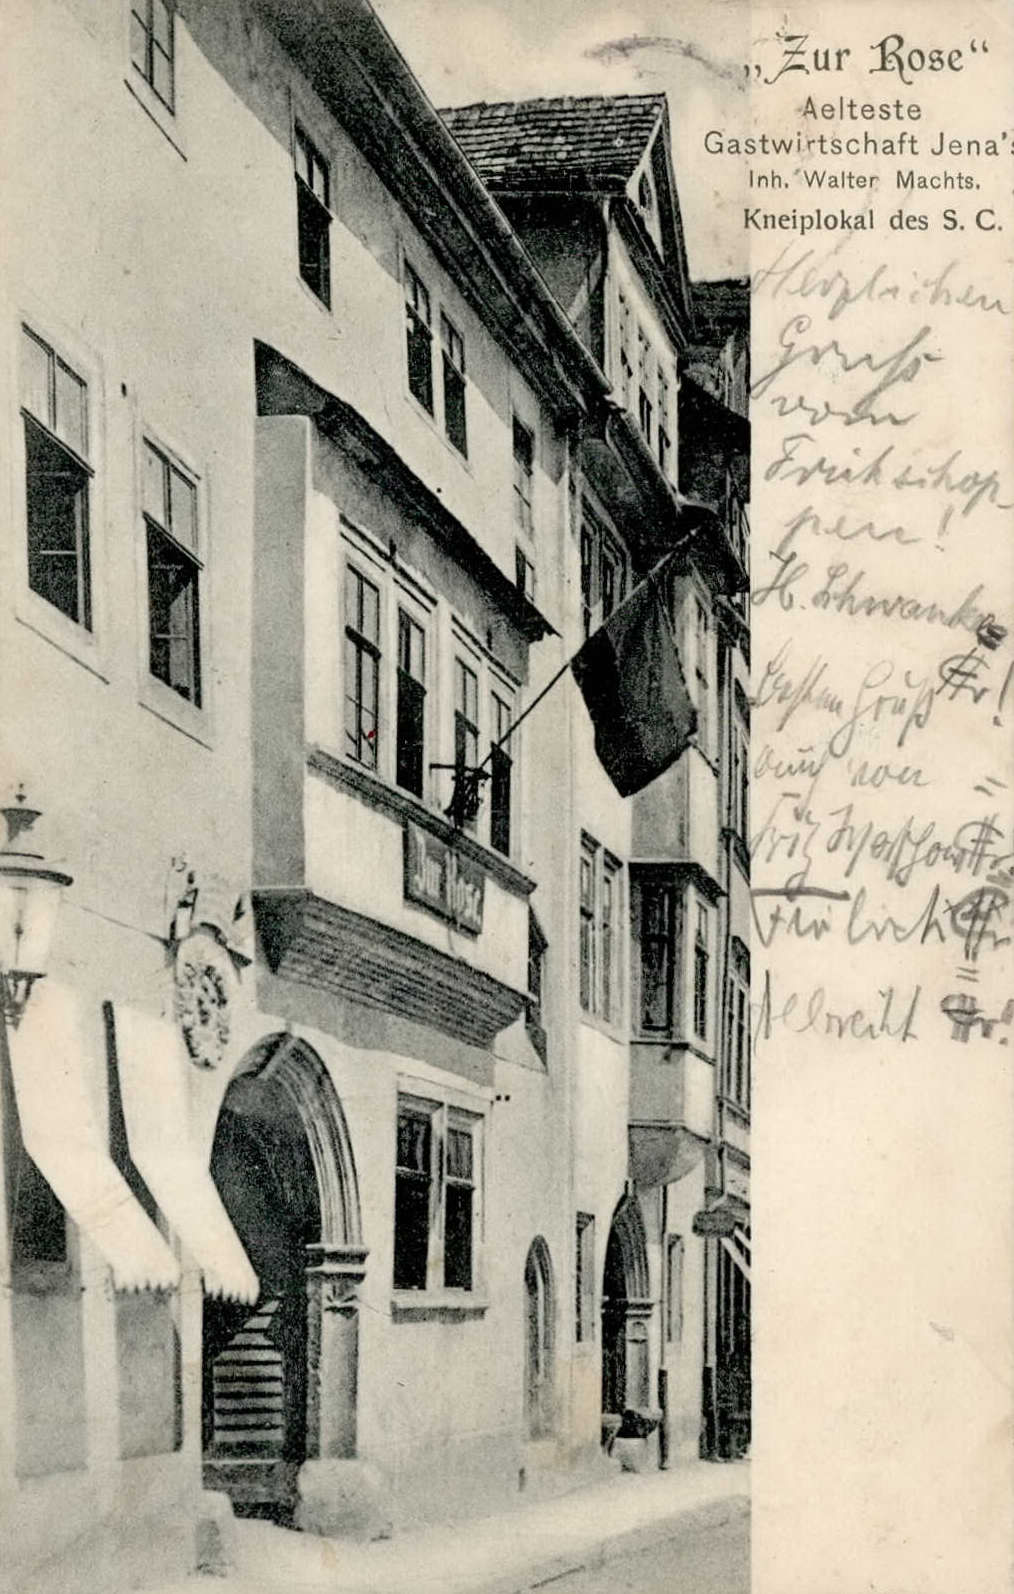 „Zur Rose“
Aelteste
Gastwirtschaft Jena's
Inh. Walter Machts.
Kneiplokal des S. C.
Herzlichen
Gruß
vom
Frühschop-
pen!
H. Schwanke
Besten Gruß
auch von
Fritz
Albrecht
Zur Rose